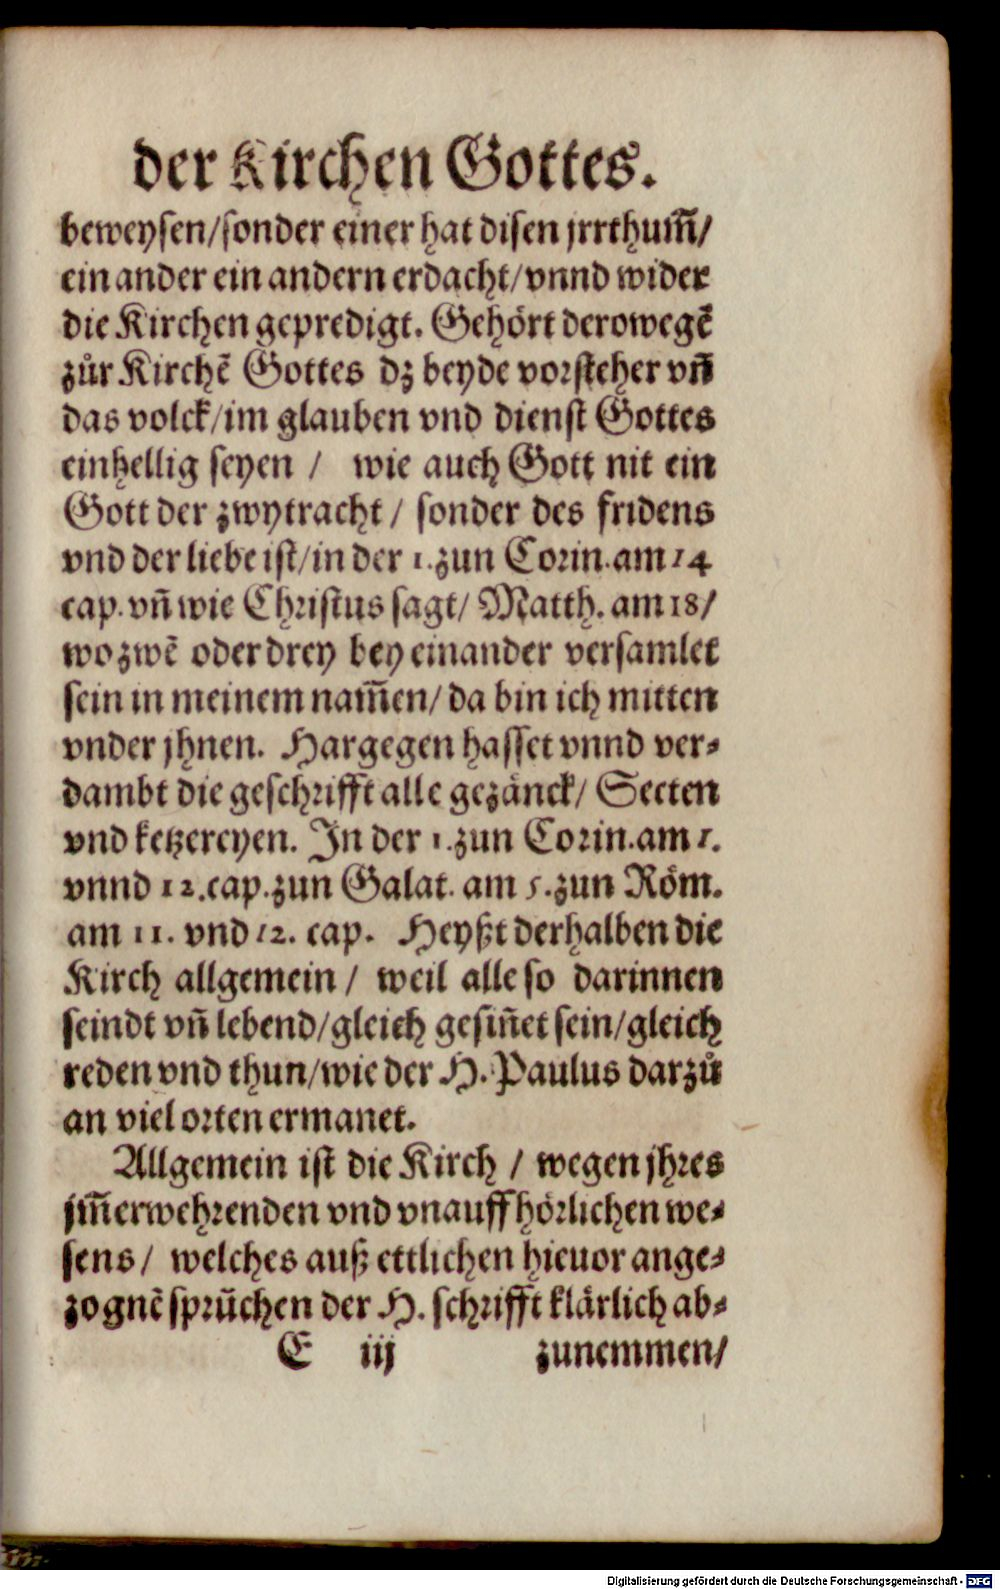 der Kirchen Gottes.
beweysen/sonder einer hat disen jrrthum̃/
ein ander ein andern erdacht/vnnd wider
die Kirchen gepredigt. Gehört derowegẽ
zůr Kirchẽ Gottes dz beyde vorsteher vñ
das volck/im glauben vnd dienst Gottes
einhellig seyen / wie auch Gott nit ein
Gott der zwytracht / sonder des fridens
vnd der liebe ist/in der 1.zun Corin.am 14
cap. vñ wie Christus sagt/ Matth. am 18/
wo zwẽ oder drey bey einander versamlet
sein in meinem nam̃en/ da bin ich mitten
vnder jhnen. Hargegen hasset vnnd ver-
dambt die geschrifft alle gezänck/ Secten
vnd ketzereyen. In der 1.zun Corin.am 1.
vnnd 12.cap.zun Galat. am 5.zun Röm.
am 11. vnd 12. cap. Heyßt derhalben die
Kirch allgemein / weil alle so darinnen
seindt vñ lebend/gleich gesiñet sein/gleich
reden vnd thun/wie der H. Paulus darzů
an viel orten ermanet.
Allgemein ist die Kirch / wegen jhres
jm̃erwehrenden vnd vnauffhörlichen we-
sens / welches auß ettlichen hieuor ange-
zognẽ sprüchen der H. schrifft klärlich ab-
E iij zunemmen/
Digitalisierung gefördert durch die Deutsche Forschungsgemeinschaft - DFG